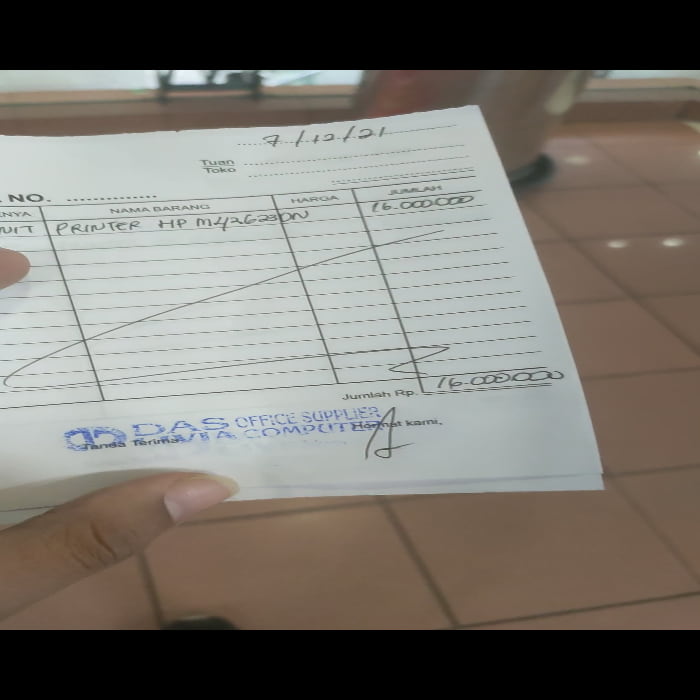 7/12/21
Tuan
Toko
NO. ...............
NYA NAMA BARANG HARGA JUMLAH
NIT PRINTER HP M42623DN 16.000.000
Jumlah Rp. 16.000.000
DAS OFFICE SUPPLIER
Tanda Terima COMPUTER Hormat kami,